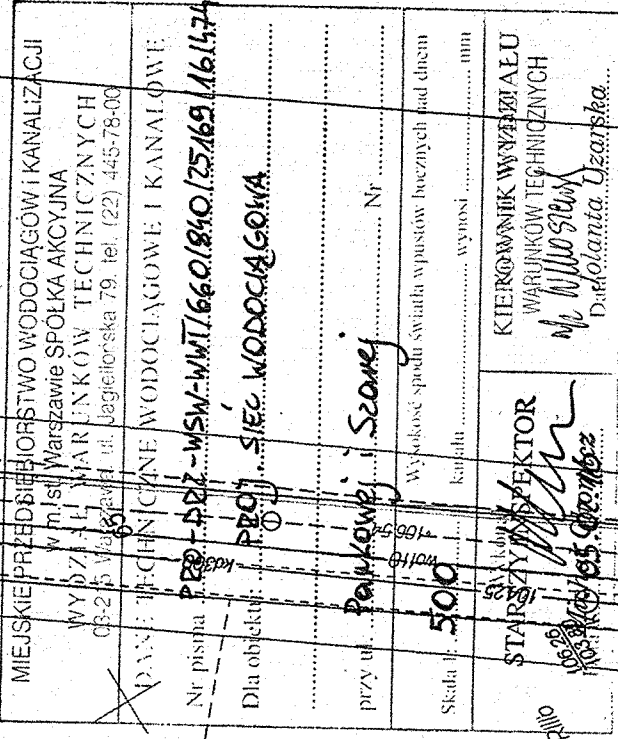 MIEJSKIE PRZEDSIĘBIORSTWO WODOCIĄGÓW i KANALIZACJI
w m. st. Warszawie SPÓŁKA AKCYJNA
WYDZIAŁ WARUNKÓW TECHNICZNYCH
ul. Jagiellońska 79, tel. (22) 445-78-00
65
DANE TECHNICZNE WODOCIĄGOWE I KANAŁOWE
Nr pisma PZO-DPZ-WSW-WWT/660/840/25169/16/1474
Dla obiektu PROJ. SIEĆ WODOCIĄGOWA
przy ul. Pawkowej i Szarej Nr
Wysokość spodu światła wpustów bocznych nad dnem
Skala 1: 500 kanału wynosi mm
STARSZY INSPEKTOR
KIEROWNIK WYDZIAŁU
WARUNKÓW TECHNICZNYCH
Jolanta Uzarska
kd30
wo110
106.54
104.25
106.26